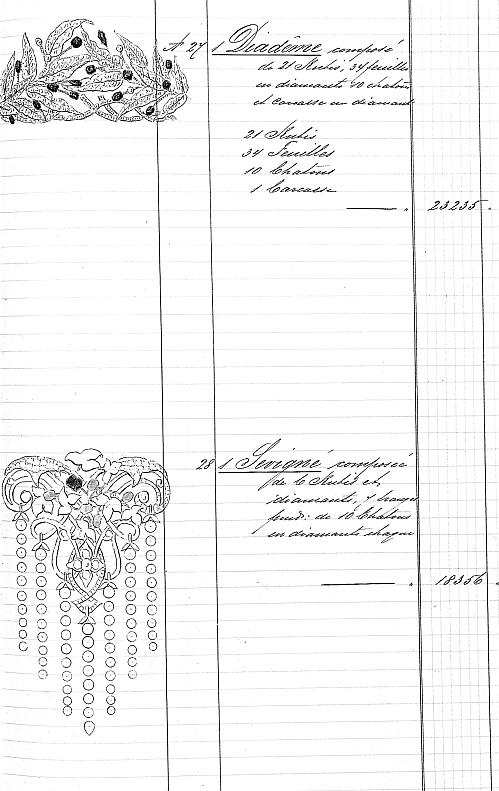 Nº 27 1 Diadême composé
de 21 Rubis, 34 feuilles
en diamants 10 chatons
et 1 carcasse en diamant
21 Rubis
34 Feuilles
10 Chatons
1 Carcasse
23235
28 1 Sevigné composée
de 6 Rubis et
diamants,
pend: de 10 Chatons
en diamants chaque
18356